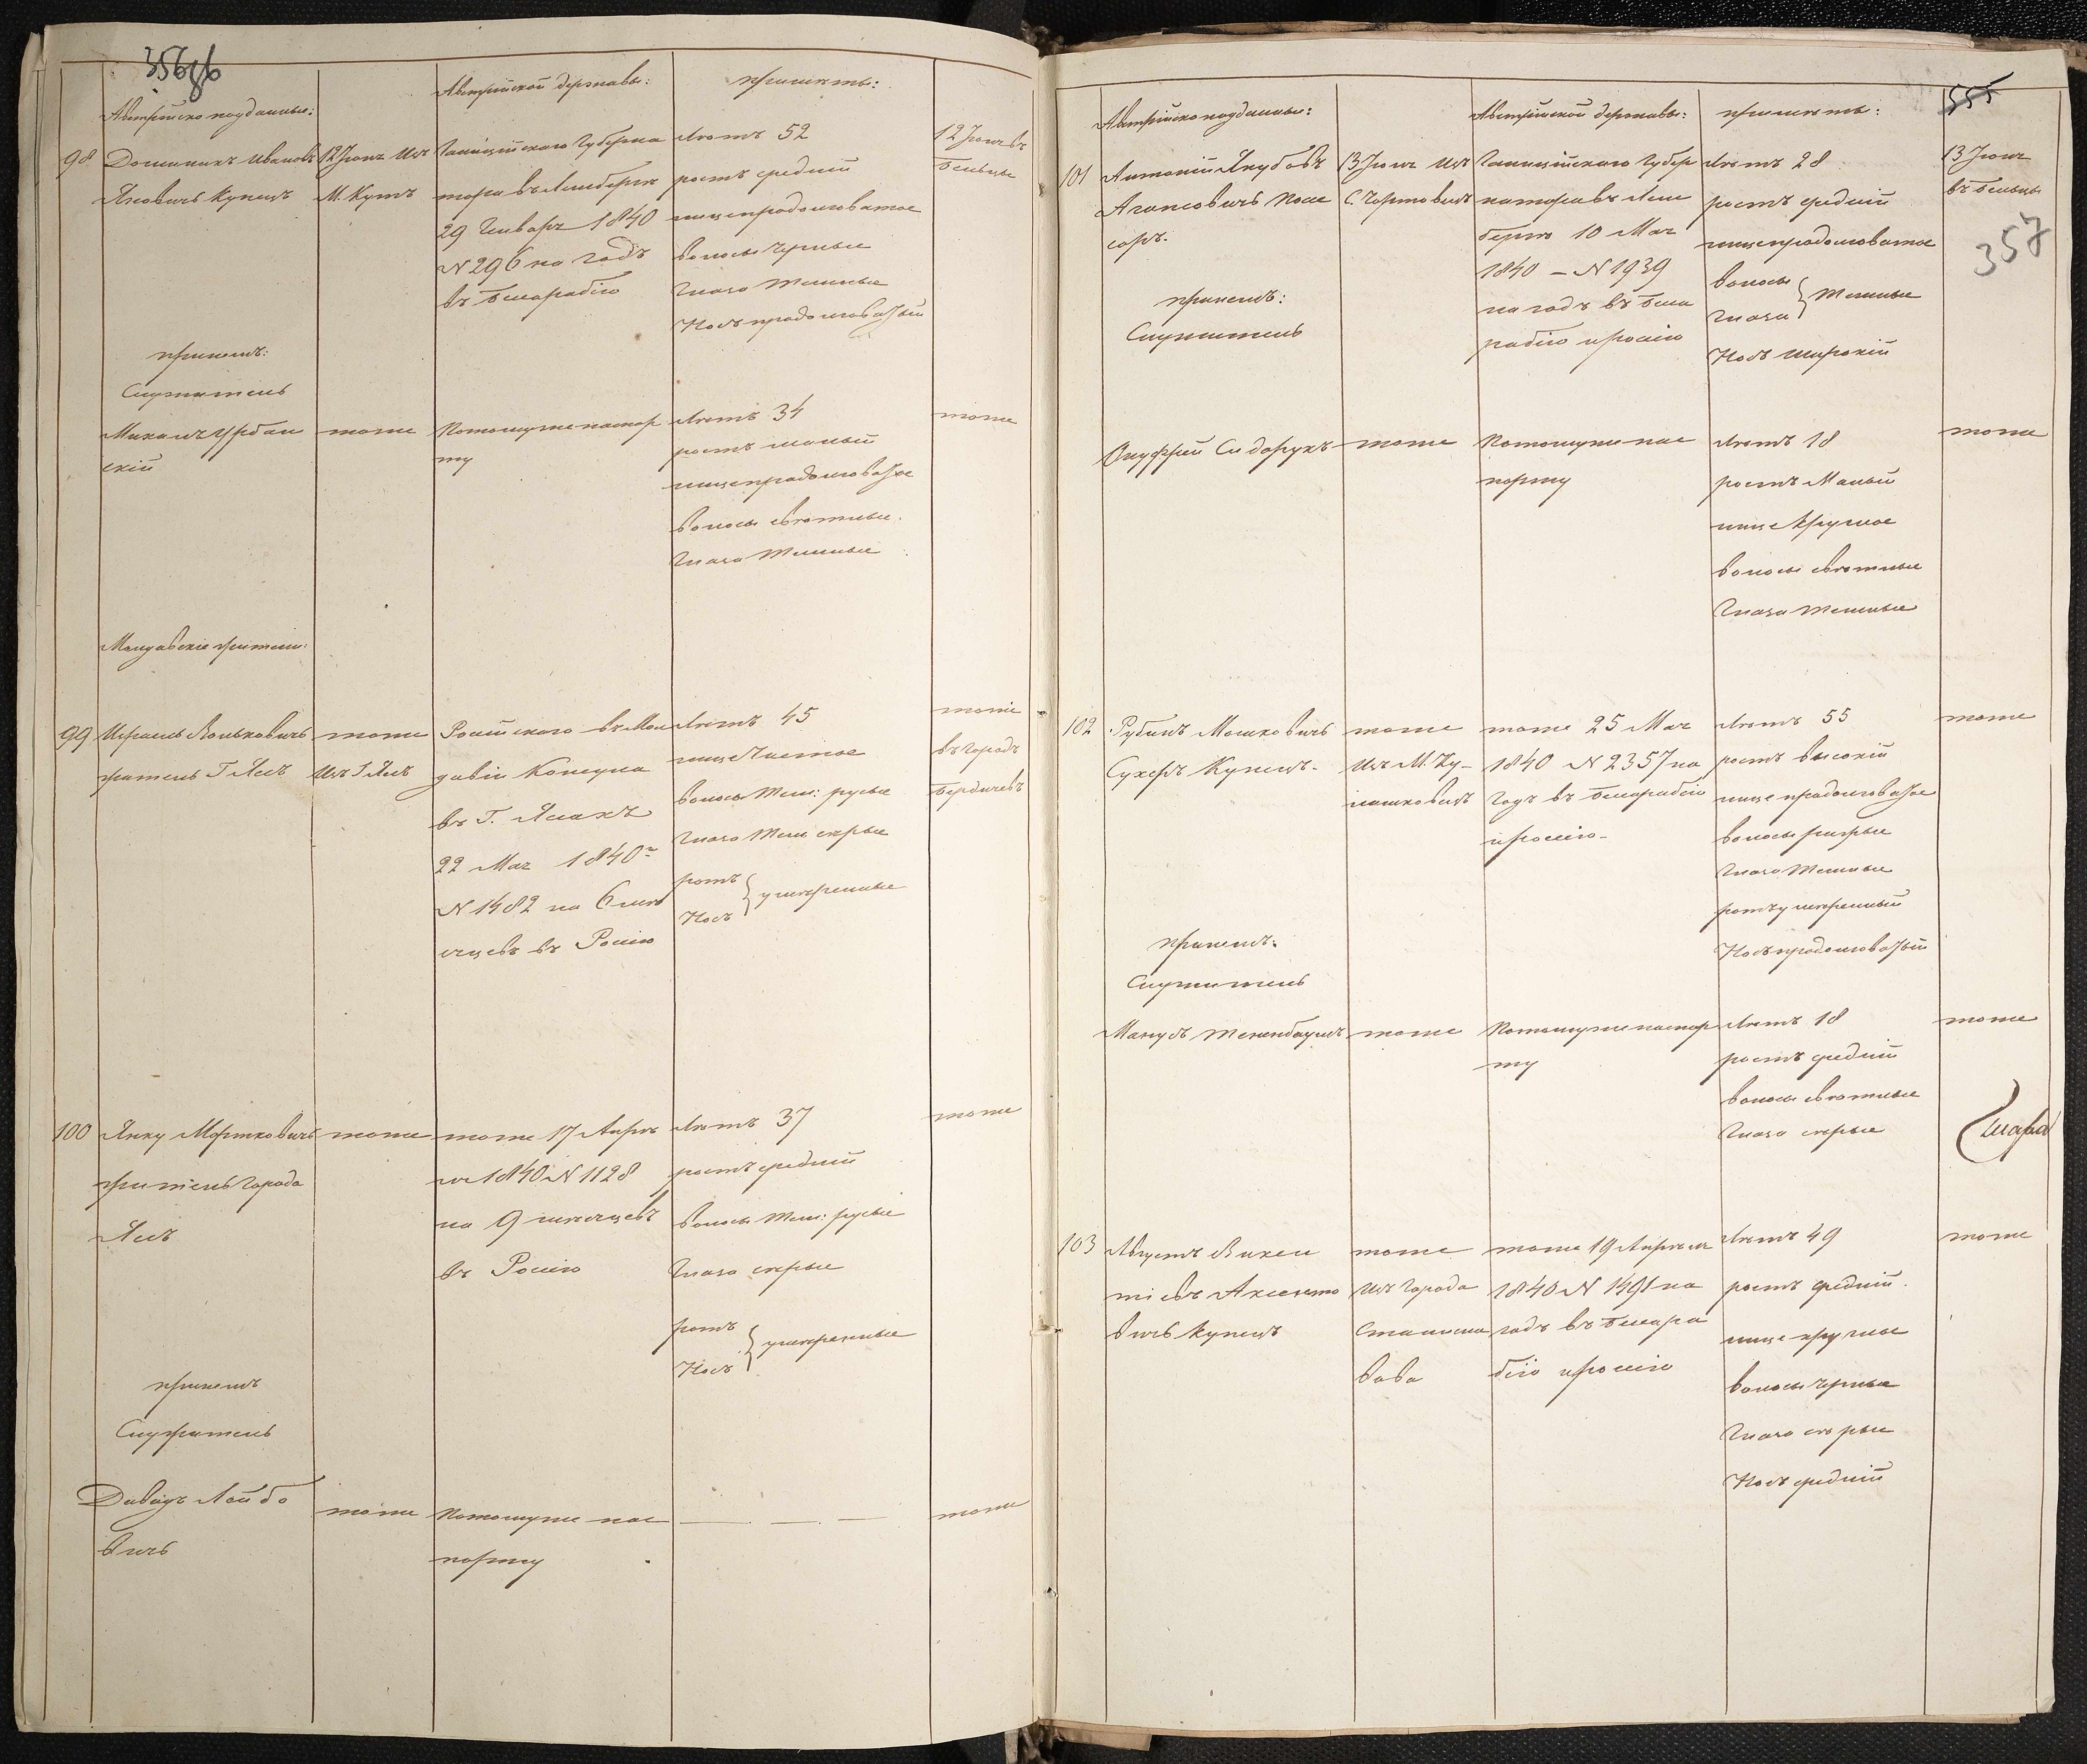 356об
Австрійско подданные:
Австрійской державы:
примѣты:
98
Доминикъ Ивановъ
Яновичь купецъ
12 Іюня Изъ
М. Кутъ
Галиційскаго Губерна
тора въ Лемберги
29 Генваря 1840
N 296 на годъ
въ Бесарабію
Лѣтъ 52
ростъ средній
лице продолговатое
волосы черные
глаза темные
Носъ продолговатый
12 Іюня въ
Бельцы
при немъ:
Служитель
Михаль Урбан
скій
тоже
Потомуже паспор
ту
Лѣтъ 34
ростъ малый
лице продолговатое
волосы свѣтлые.
глаза темные
тоже
Молдавскіе жители:
99
Израиль Вольковичь
житель Г. Ясъ
тоже
Изъ Г. Ясъ
Россійскаго въ Мол
давіи Консула
въ Г. Яссахъ
22 Мая 1840 г
N 1482 на 6 мѣся
цевъ въ Россію
Лѣтъ 45
лице Чистое
волосы тем: русые
глаза тем: сѣрые
ротъ
Носъ } умѣренные
тоже
въ городъ
Бердичевъ
100
Янку Мортковичь
житель города
Ясъ
тоже
тоже 17 Апрѣ
ля 1840 N 1128
на 9 мѣсяцевъ
въ Россію
Лѣтъ 37
ростъ средній
волосы тем: русые
глаза сѣрые
ротъ
Носъ } умѣренные
тоже
при немъ
Служитель
Давидъ Лейбо
вичь
тоже
Потомуже пас
порту
— — —
тоже
555
357
Австрійско подданные:
Австрійской державы:
примѣты:
101
Антоній Якубовъ
Агопсовичь Посе
соръ.
13 Іюня Изъ
С. Чортовецъ
Галиційскаго Губер
натора въ Лем
бергѣ 10 Мая
1840 — N 1939
на годъ въ Беса
рабію и Росію
Лѣтъ 28
ростъ средній
лице продолговатое
волосы
глаза } темные
Носъ широкій
13 Іюня
въ Бельцы
при немъ:
Служитель
Онуфрій Сидорукъ
тоже
Потомуже пас
порту
Лѣтъ 18
ростъ Малый
лице круглое
волосы свѣтлые
глаза темные
тоже
102
Рубинъ Мошковичь
Сухеръ Купецъ.
тоже
Изъ М. Ку-
лашковецъ
тоже 25 Мая
1840 N 2357 на
годъ въ Бесарабію
и Россію.
Лѣтъ 55
ростъ высокій
лице продолговатое
волосы рыжые
глаза темные
ротъ умѣренный
Носъ продолговатый
тоже
при немъ.
Служитель
Манусъ Тененбаумъ
тоже
Потомуже паспор
ту
Лѣтъ 18
ростъ средній
волосы свѣтлые
глаза сѣрые
тоже
103
Августъ Викен
тіевъ Аксенто
вичь купецъ
тоже
Изъ города
Станисла
вова
тоже 19 Апрѣля
1840 N 1491 на
годъ въ Бесара
бію и Россію
Лѣтъ 49
ростъ средній.
лице круглое
волосы черные
глаза сѣрые
Носъ средній
тоже